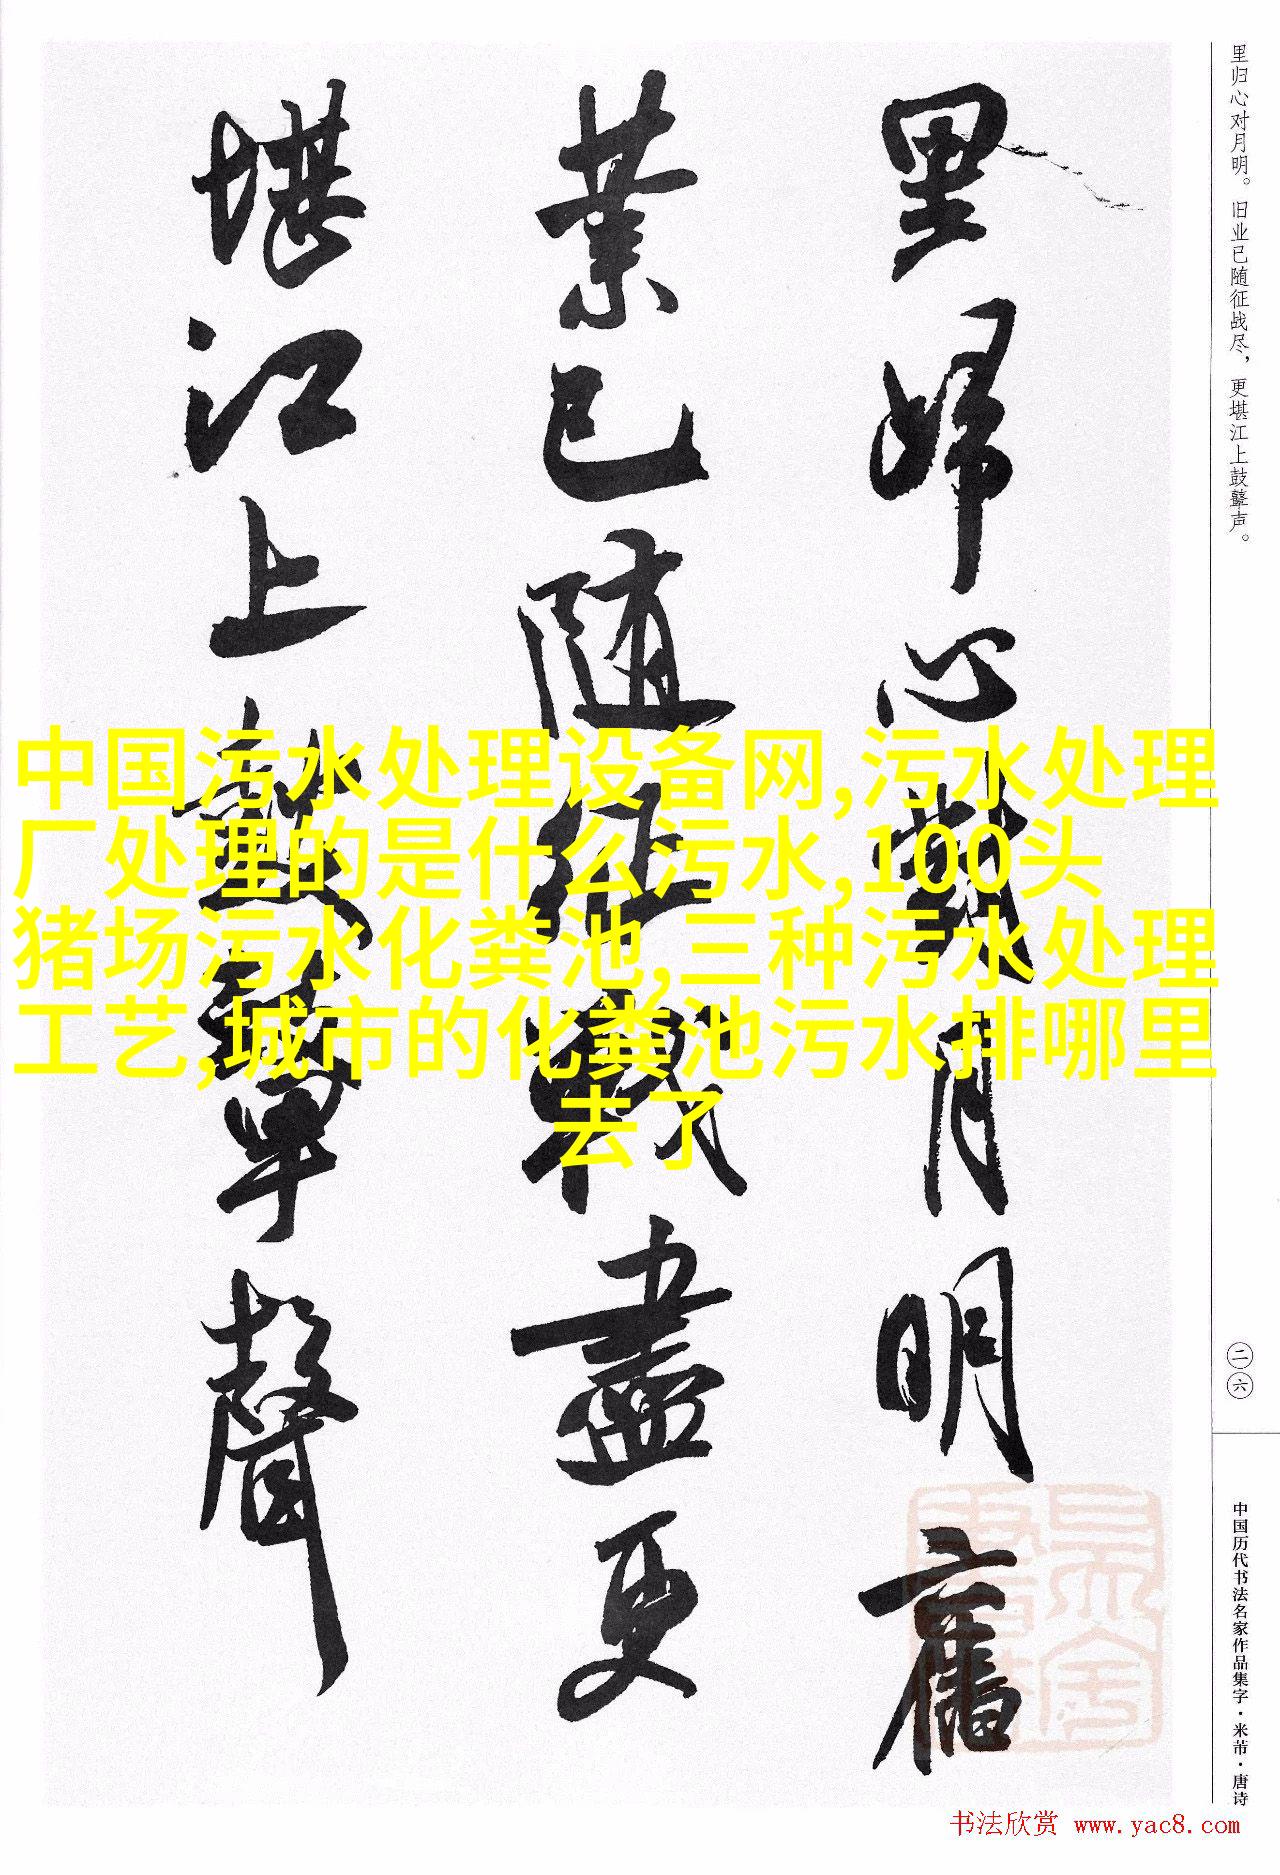 里归心对月明。旧业已随征战尽，更堪江上鼓鼙声。
里歸心對月明舊
業已隨征戰盡更
堪江上鼓鼙聲
中国污水处理设备网,污水处理
厂处理的是什么污水,100头
猪场污水化粪池,三种污水处理
工艺,城市的化粪池污水排哪里
去了
二六
中国历代书法名家作品集字·米芾·唐诗
书法欣赏 www.yac8.com